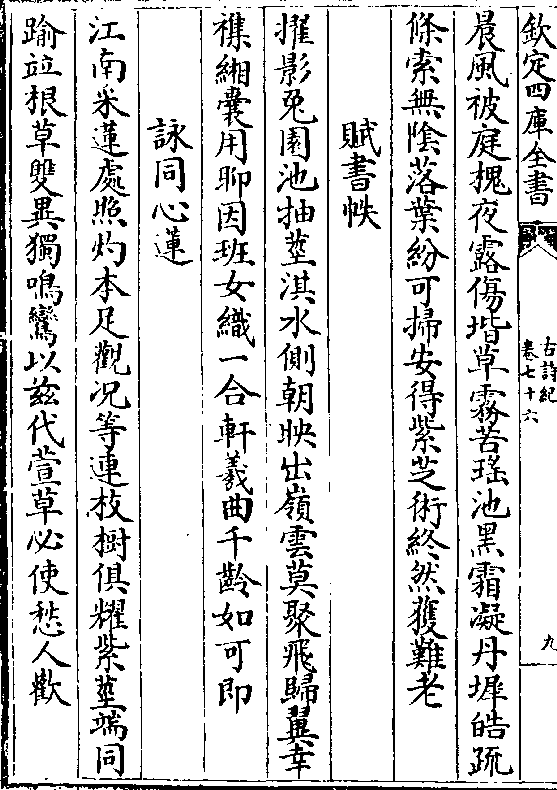 欽定四庫全書
古詩紀
卷七十六
九
晨風被庭槐夜露傷堦草霧苦瑤池黑霜凝丹墀皓疏
條索無陰落葉紛可掃安得紫芝術終然獲難老
賦書帙
擢影兎園池抽莖淇水側朝映出嶺雲莫聚飛歸翼幸
襍緗囊用聊因班女織一合軒羲曲千齡如可即
詠同心蓮
江南采蓮處照灼本足觀况等連枝樹俱耀紫莖端同
踰竝根草雙異獨鳴鸞以兹代萱草必使愁人歡